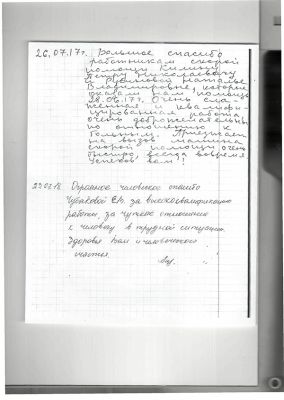 26.07.17г. Большое спасибо
работникам скорой
помощи
Петру Николаевичу
и Наталье
Владимировне, которые
оказали нам помощь
26.06.17г. Очень сла-
женная и квалифи-
цированная работа,
очень доброжелательны
по отношению к
больным. Приезжает
на вызов машина
скорой помощи очень
быстро, всегда вовремя
Успехов вам!
Огромное человеческое спасибо
Е.Н. за высококвалификацию
работы, за чуткое отношение
к человеку в трудной ситуации.
Здоровья Вам и человеческого
счастья.